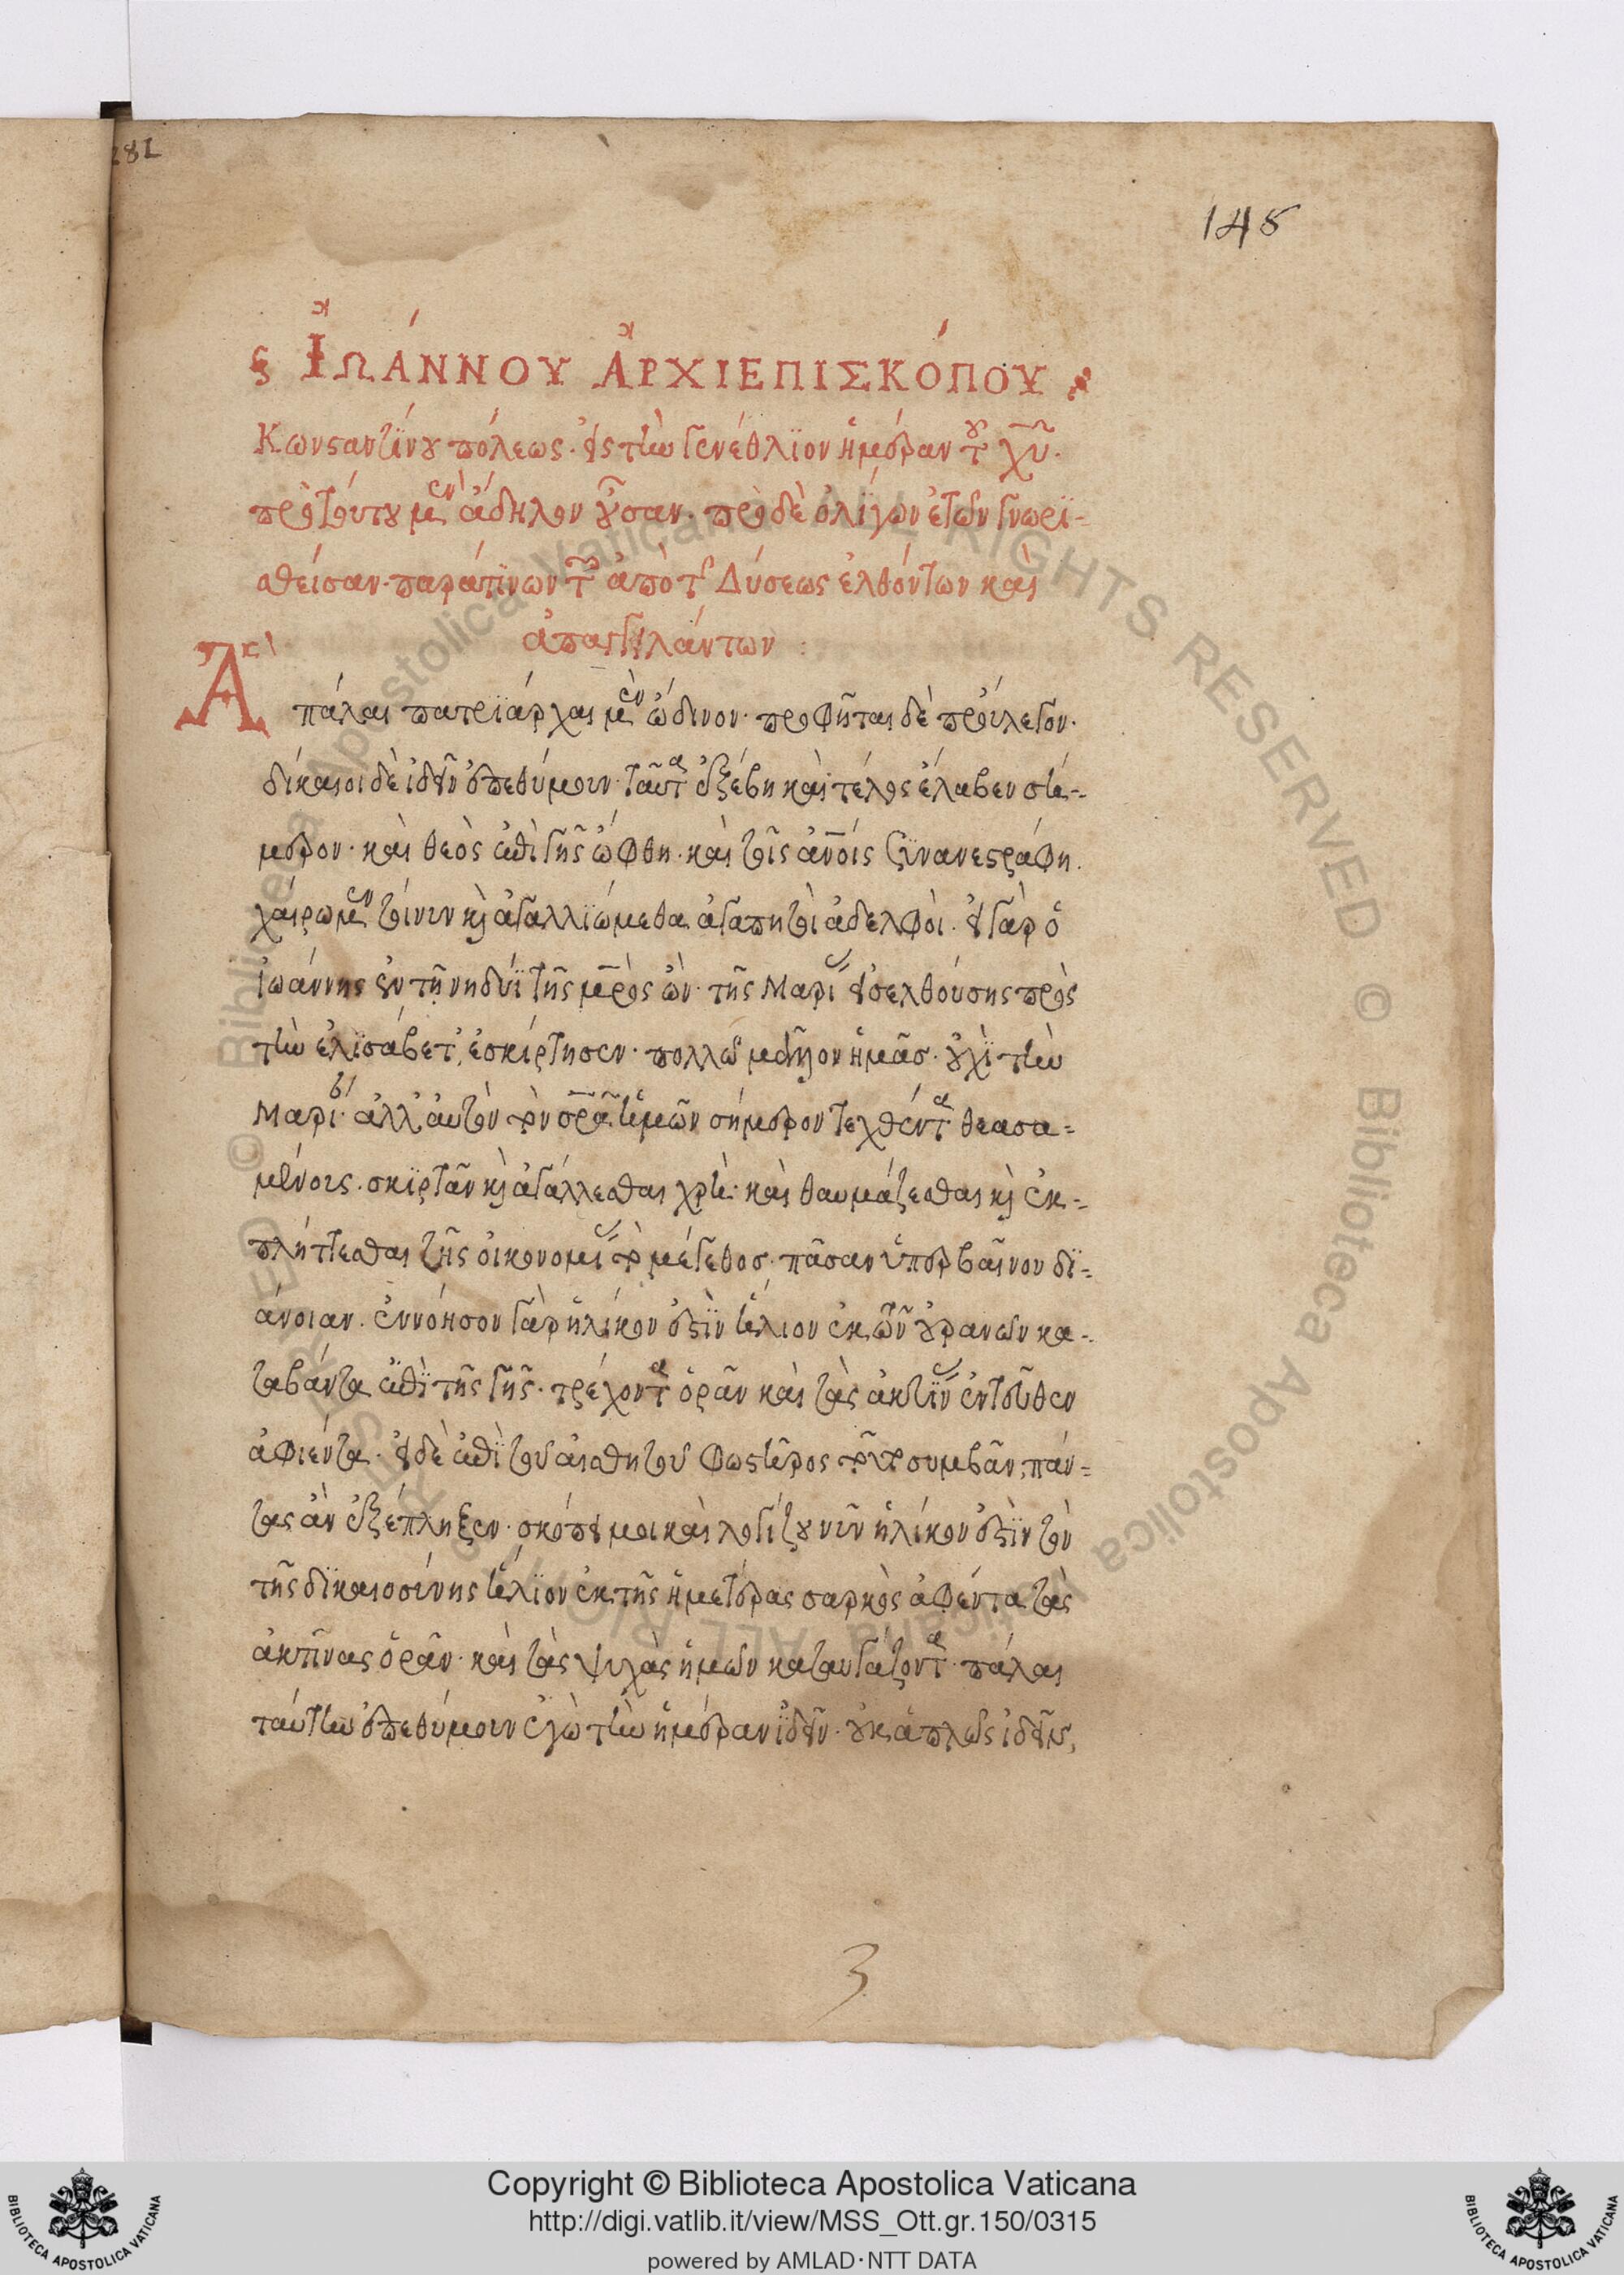 281
145
ς ἸΩΆΝΝΟΥ ἈΡΧΙΕΠΙΣΚΌΠΟΥ
Κωνςαντϊνου πόλεως· εἰς τὴν γενέθλϊον ἡμέραν τοῦ χ̅υ̅·
πρὸ τούτου μὲν ἄδηλον οὖσαν· πρὸ δὲ ὀλίγων ἐτῶν γνωρϊ-
σθεῖσαν· παρά τινων τῶν ἀπὸ τῆς Δύσεως ἐλθόντων καὶ
ἀπαγγειλάντων :
Ἃ
πάλαι πατρϊάρχαι μὲν ὤδινον· προφῆται δὲ προύλεγον·
δίκαιοι δὲ ἰδεῖν ἐπεθύμουν· ταῦτα ἐξέβη καὶ τέλος ἔλαβεν σή-
μερον· καὶ θεὸς ἐπὶ γῆς ὤφθη· καὶ τοῖς ἀν̅οις συνανεςράφη.
χαίρωμεν τοίνυν κὶ ἀγαλλϊώμεθα ἀγαπητοὶ ἀδελφοὶ. εἰ γὰρ ὁ
ἰωάννης ἐν τῇ νηδύϊ τῆς μ̅ρ̅ὸς ὢν· τῆς Μαρίας εἰσελθούσης πρὸς
τὴν ἐλϊσάβετ, ἐσκίρτησεν· πολλῶ μᾶλλον ἡμᾶσ· οὐχϊ τὴν
Μαρίαν· ἀλλ' αὐτὸν τὸν σ̅ρ̅α ἡμῶν σήμερον τεχθέντα θεασα-
μένους· σκϊρτᾶν κὶ ἀγάλλεσθαι χρὴ· καὶ θαυμάζεσθαι κὶ ἐκ-
πλήττεσθαι τῆς οἰκονομίας τὸ μέγεθος· πᾶσαν ὑπερβαῖνον δϊ-
άνοιαν. ἐννόησον γὰρ ἡλίκον ἐςὶν ἥλιον ἐκ τῶν οὐρανῶν κα-
ταβάντα ἐπὶ τῆς γῆς· τρέχοντα ὁρᾶν καὶ τὰς ἀκτῖνας ἐντεῦθεν
ἀφιέντα· εἰ δὲ ἐπὶ τοῦ αἰσθητοῦ φωςῆρος τοῦτο συμβᾶν, πάν-
τας ἂν ἐξέπληξεν· σκόπει μοι καὶ λογίζου νῦν ἡλίκον ἐςὶν τὸν
τῆς δϊκαιοσύνης ἥλϊον ἐκ τῆς ἡμετέρας σαρκὸς ἀφέντα τὰς
ἀκτῖνας ὁρᾶν· καὶ τὰς ψυχὰς ἡμῶν καταυγάζοντα· πάλαι
ταύτην ἐπεθύμουν ἐγὼ τὴν ἡμέραν ἰδεῖν· οὐκ ἁπλῶς ἰδεῖν,
3
© Biblioteca Apostolica Vaticana ALL RIGHTS RESERVED © Biblioteca Apostolica Vaticana ALL RIGHTS RESERVED
Copyright © Biblioteca Apostolica Vaticana
http://digi.vatlib.it/view/MSS_Ott.gr.150/0315
powered by AMLAD·NTT DATA
BIBLIOTECA APOSTOLICA VATICANA
BIBLIOTECA APOSTOLICA VATICANA